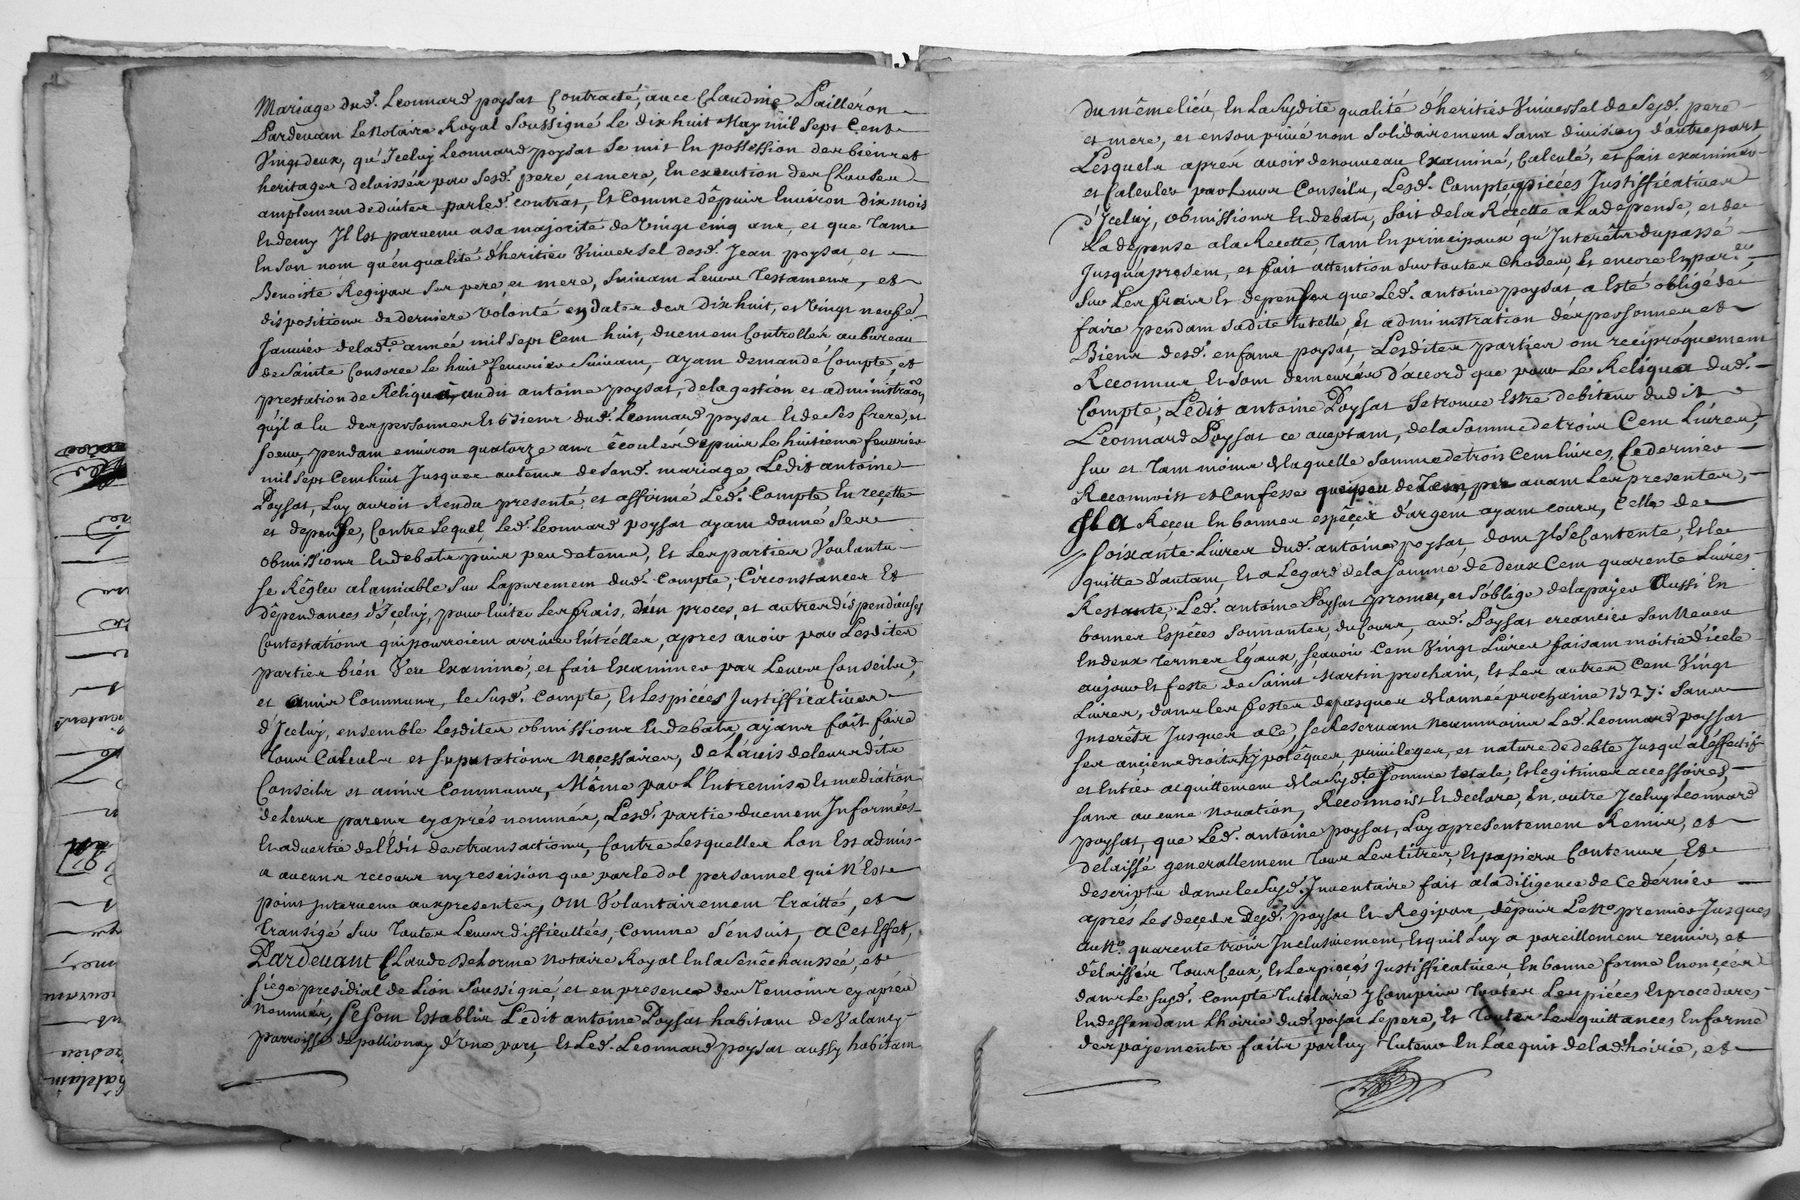 Mariage dud. Leonnard poysat Contracté, avec Claudine Pailleron
Pardevant Le Notaire Royal Soussigné le dix huit May mil Sept Cent
Vingt deux, qu'Iceluy Leonnard poysat Se mit En possession des biens et
heritages delaissés par Sesd. pere, et mere, En execution des Clauses
amplement deduites par led. contrat, Et Comme depuis Environ dix mois
Et demy Il Est parvenu a sa majorité de Vingt cinq ans, et que Tant
En son nom qu'en qualité d'heritier Universel desd. Jean poysat, et
Benoiste Regipas Ses pere et mere, Suivant Leurs Testaments, et
dispositions de derniere Volonté en dates des Dix huit, et Vingt neufe
Janvier de lad.te année mil sept Cent huit, duement Controllés au bureau
de Sainte Consorce Le huit fevrier Suivant, ayant demandé Compte, et
prestation de Reliqua, audit antoine poysat, de la gestion et administraon
qu'il a Eu des personnes Et biens dud. Leonnard poysat Et de Ses frere, et
Soeur, pendant environ quatorze ans écoulés depuis Le huitieme fevrier
mil Sept Cent huit Jusques au tems de Sond. mariage Ledit antoine
Poysat, Luy auroit Rendu presenté, et affirmé Led. Compte En recette
et depense, Contre Lequel, Led. Leonnard poysat ayant donné Ses
obmissions Et debats puis peu de tems, Et Les parties Voulants
se Régler a l'amiable Sur L'apurement dud. Compte, Circonstances Et
dépendances d'Iceluy, pour Eviter Les frais, d'un proces, et autres dispendieuses
Contestations qui pourroient arriver Entr'elles, apres avoir par Lesdites
parties bien Veu Examiné, et fait Examiner par Leurs Conseils,
et amis Communs, le Susd. Compte, Et Les pieces Justifficatives
d'Iceluy, ensemble Lesdites obmissions Et debats, ayants fait faire
Tous Calculs et Suputations Necessaires, de L'avis de leursdits
Conseils et amis Communs, Même par L'Entremise Et mediation
de Leurs parens cy aprés nommés, Lesd. partie duement Informées
Et advertie de l'Edit des transactions, Contre Lesquelles L'on Est admis
a aucuns recours ny rescision que par le dol personnel qui N'Est
point Intervenu aux presentes, Ont Volontairement Traitté, et
Transigé Sur Toutes Leurs difficultées, Comme S'ensuit, a Cet Effet,
Pardevant Claude Delorme Notaire Royal En la Sénéchaussée, et
Siége presidial de Lion Soussigné, et en presence des Temoins cy aprés
Nommés, Se Sont Establis Ledit antoine Poysat habitant de Valancy
parroisse de pollionay d'Une part, Et Led. Leonnard poysat aussy habitant
du même lieu, En La Susdite qualité d'heritier Universel de Sesd. pere
et mere, et en son privé nom Solidairement Sans division d'autre part,
Lesquels aprés avoir de nouveau Examiné, Calculé, et fait examiner
et Calculer par Leurs Conseils, Lesd. Compte, pieces Justifficatives
d'Iceluy, obmissions Et debats, Soit de la Recette a La depense, et de
La depense a la Recette, Tant En principaux qu'Interêts du passé
Jusqu'a present, et fait attention Sur toutes choses, Et encore En par.er
Sur Les frais Et depenses que Led. antoine poysat a Esté obligé de
faire pendant Sadite tutelle, Et administration des personnes et
Biens desd. enfans poysat, Lesdites parties ont reciproquement
Reconnus Et Sont demeurés d'accord que pour Le Reliqua dud.
Compte, Ledit antoine Poysat Se trouve Estre debiteur dudit
Leonnard Poysat ce acceptant, de la Somme de trois Cent Livres,
Sur et Tant moins de laquelle Somme de trois Cent livres, Ce dernier
Reconnoist et Confesse que peu de Tems, avant Les presentes,
Il a Reçu En bonnes espéces d'argent ayant cours, Celle de
Soixante Livres dud. antoine poysat, dont Il Se Contente, Et Le
quitte d'autant, Et a L'egard de la Somme de deux Cent quarente Livres
Restante, Led. antoine Poysat promet, et S'oblige de la payer Aussi En
bonnes Espéces Sonnantes, du Cours, aud. Poysat creancier Son Neveu
En deux Termes Egaux, Sçavoir Cent Vingt Livres faisant moitié d'icelle
au jour Et feste de Saint Martin prochain, Et Les autres Cent Vingt
Livres, dans Les festes de pasques de l'année prochaine 1727: Sans
Interêts Jusques a Ce, Se Reservant Neanmoins Led. Leonnard poysat
Ses anciens droits hypotêques, privileges, et nature de debte Jusqu'a l'effectif
et Entier acquittement de la Susd.te Somme totale, Et legitimes accessoires,
Sans aucune Novation, Reconnoist Et declare, En outre Iceluy Leonnard
poysat, que Led. antoine poysat, Luy a presentement Remis, et
delaissé generallement Tous Les titres, Et papiers Contenus, Et
descripts dans le Susd. Inventaire fait a la diligence de Ce dernier
aprés Les decéds desd. poysat Et Regipas, dépuis Le N.o premier Jusques
au N.o quarente trois Inclusivement, Et qu'il Luy a pareillement remis, et
délaissés Tous Ceux, Et Les pieces Justifficatives, En bonne forme Enoncées
dans Le Susd. Compte Tutelaire y Compris Toutes Les pieces Et procedures
En deffendant L'hoirie dud. poysat Le pere, Et Toutes Les quittances En forme
des pajements faits par luy Tuteur En L'acquit de lad. hoirie, et